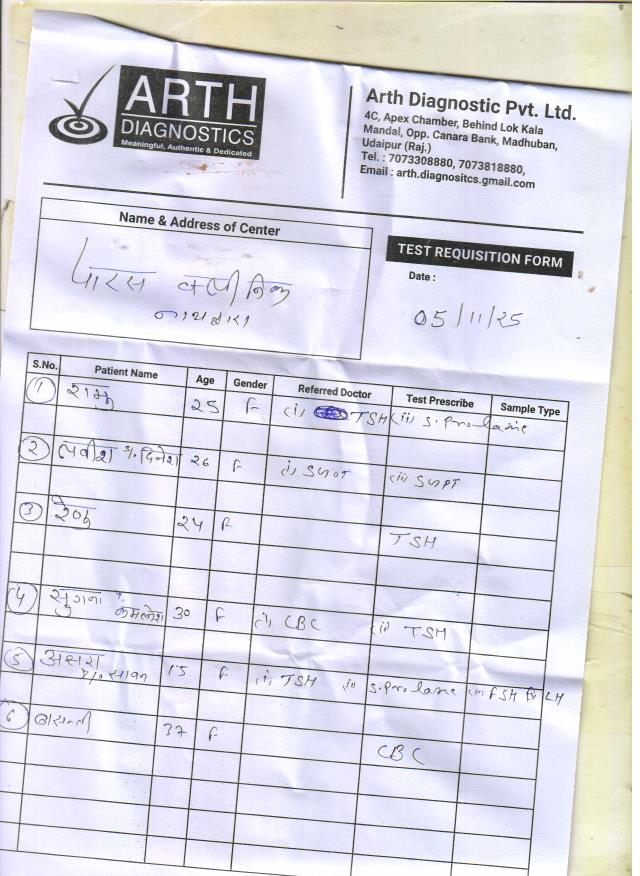 ARTH
DIAGNOSTICS
Meaningful, Authentic & Dedicated
Arth Diagnostic Pvt. Ltd.
4C, Apex Chamber, Behind Lok Kala
Mandal, Opp. Canara Bank, Madhuban,
Udaipur (Raj.)
Tel. : 7073308880, 7073818880,
Email : arth.diagnositcs.gmail.com
Name & Address of Center
पारस क्लीनिक
नाथद्वारा
TEST REQUISITION FORM
Date :
05/11/25
S.No. Patient Name Age Gender Referred Doctor Test Prescribe Sample Type
1 25 F (i) TSH (ii) S. Prolactin
2 दिनेश 26 F (i) SGOT (ii) SGPT
3 रेणु 24 F TSH
4 सुगना
कमलेश 30 F (i) CBC (ii) TSH
5 15 F (i) TSH (ii) S. Prolactin FSH LH
6 बासन्ती 37 F CBC